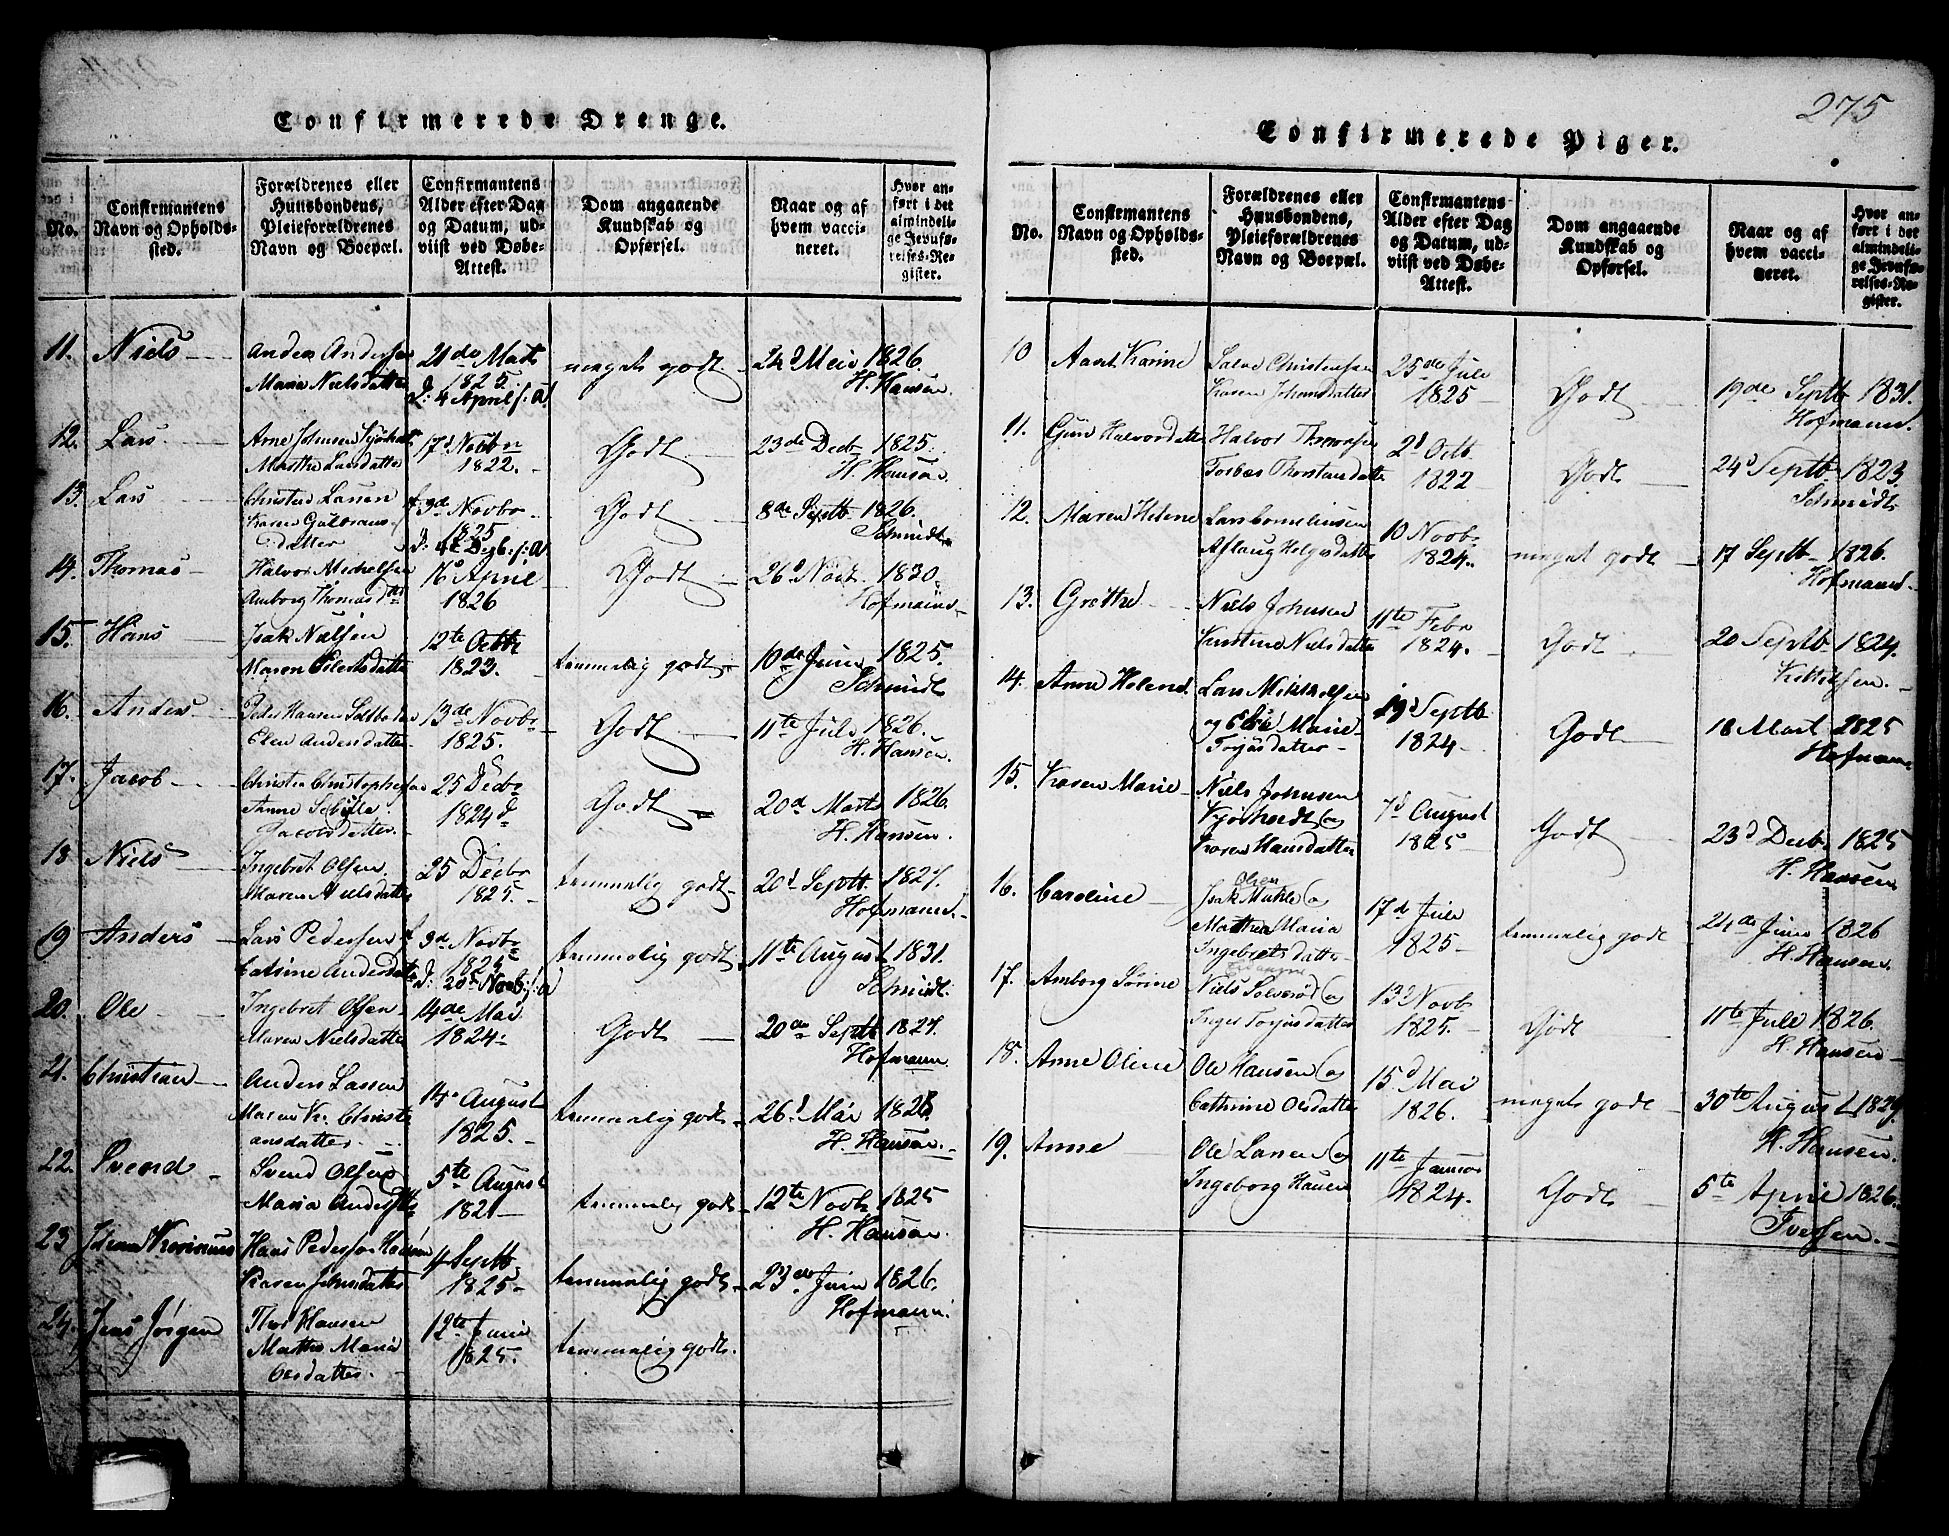 275
Confirmerede Drenge.
No.
Confirmantens Navn og Opholdssted.
Forældrenes eller Huusbondens, Pleieforældrenes Navn og Boepæl.
Confirmantens Alder efter Dag og Datum, udviist ved Døbe-Attest.
Dom angaaende Kundskab og Opførsel.
Naar og af hvem vaccineret.
Hvor anført i det almindelige Jevnførelses-Register.
11. Niels Anders Andersen 21de Marts meget godt. 24d Mei 1826.
Maria Nielsdatter 1825. H. Hansen.
d: 4 April /: A
12. Lars Arne Johnsen 17d Novbr Godt. 23de Decb 1825.
Marthe Larsdatter 1822. H. Hansen.
13. Lars Christen Larsen 3de Novbr Godt. 8de Septb 1826.
Karen Gulbrans- 1825 Schmidt.
datter
14. Thomas Halvor Michelsen 16d April Godt 26d 1830.
Amborg Thomasd 1826 Hofmand
15. Hans Isak Nielsen 12te Octbr temmelig godt 10de Juni 1825.
Maren 1823. Schmidt
16. Anders Peder Hansen 13de Novbr Godt 11te Juli 1826.
Elen Andersdatter 1825. H. Hansen.
17. Jacob Christen Christophersen 25 Decbr Godt 20d Marts 1826.
Anne 1824 H. Hansen.
Jacobsdatter.
18 Niels Ingebret Olsen. 25 Decbr temmelig godt 20d Septb. 1827.
Maren Nielsdatter 1825. Hofmand.
19 Anders Lars Pedersen 3d Novbr temmelig godt 11te August 1831.
Catrine Andersdatter 1825 Schmidt.
d: 20d Novb /: a
20. Ole Ingebret Olsen 14de Mai Godt 20de Septb 1827.
Maren Nielsdatter 1824. Hofmann
21. Christian Anders Larsen 14 August temmelig godt 26d Mai
Maren Kr. Christi- 1825. H. Hansen.
ansdatter
22. Svend Svend Olsen 5te August temmelig godt 12te Novb. 1825
Maria Anders 1821 H. Hansen.
23 Hans Pedersen 4 Septb temmelig godt 23de Juni 1826.
Karen Johnsdatter 1825. Hofmann.
24. Jens Jørgen Thor Hansen 12te Junii temmelig godt.
Mathe Maria 1825.
Olsdatter.
Confirmerede Piger.
No.
Confirmantens Navn og Opholdssted.
Forældrenes eller Huusbondens, Pleieforældrenes Navn og Boepæl.
Confirmantens Alder efter Dag og Datum, udviist ved Døbe-Attest.
Dom angaaende Kundskab og Opførsel.
Naar og af hvem vaccineret.
Hvor anført i det almindelige Jevnførelses-Register.
10 Aaset Karine Christensen 25de Juli Godt 19de Septb 1831.
Karen Johannsdatter 1825 Hofmann.
11. Halvorsdatter Halvor 2d Octb Godt 24d Septb 1823.
Thorstensdatter 1822 Schmidt
12. Maren Helene Lars Cornelinsen 10 Novbr meget godt 17 Septb 1826.
Aslaug Helgesdatter 1824. Hofmand.
13. Grethe Niels Johnsen 11te Febr Godt 20 Septb 1824.
Kirstine Nielsdatter 1824. Kittilsen.
14. Anne Helene Lars Mikkelsen 19d Septb Godt 18 Mart 1825
og Marie 1824 Hofmann
Torjusdatter
15. Karen Marie Niels Johnsen 7d August Godt 23d Decb. 1825
og 1825 H. Hansen
Karen Hansdatter
16. Caroline Olsen
Isak Muhle og 17d Juli temmelig godt 24de Juni 1826
Mathea Maria 1825 H. Hansen.
Ingebretsdatter
17. Amborg Sørine Niels Solverød og 13d Novbr Godt 11te Juli 1826.
Inger Torjusdatter 1825. H. Hansen
18. Anne Oline Ole Hansen og 15d Mai meget godt 30te August 1829.
Cathrine Olsdatter 1826. H. Hansen.
19. Anne Ole Larsen og 11te Januar Godt 5te April 1826.
Ingeborg Hansen 1824. Iversen.